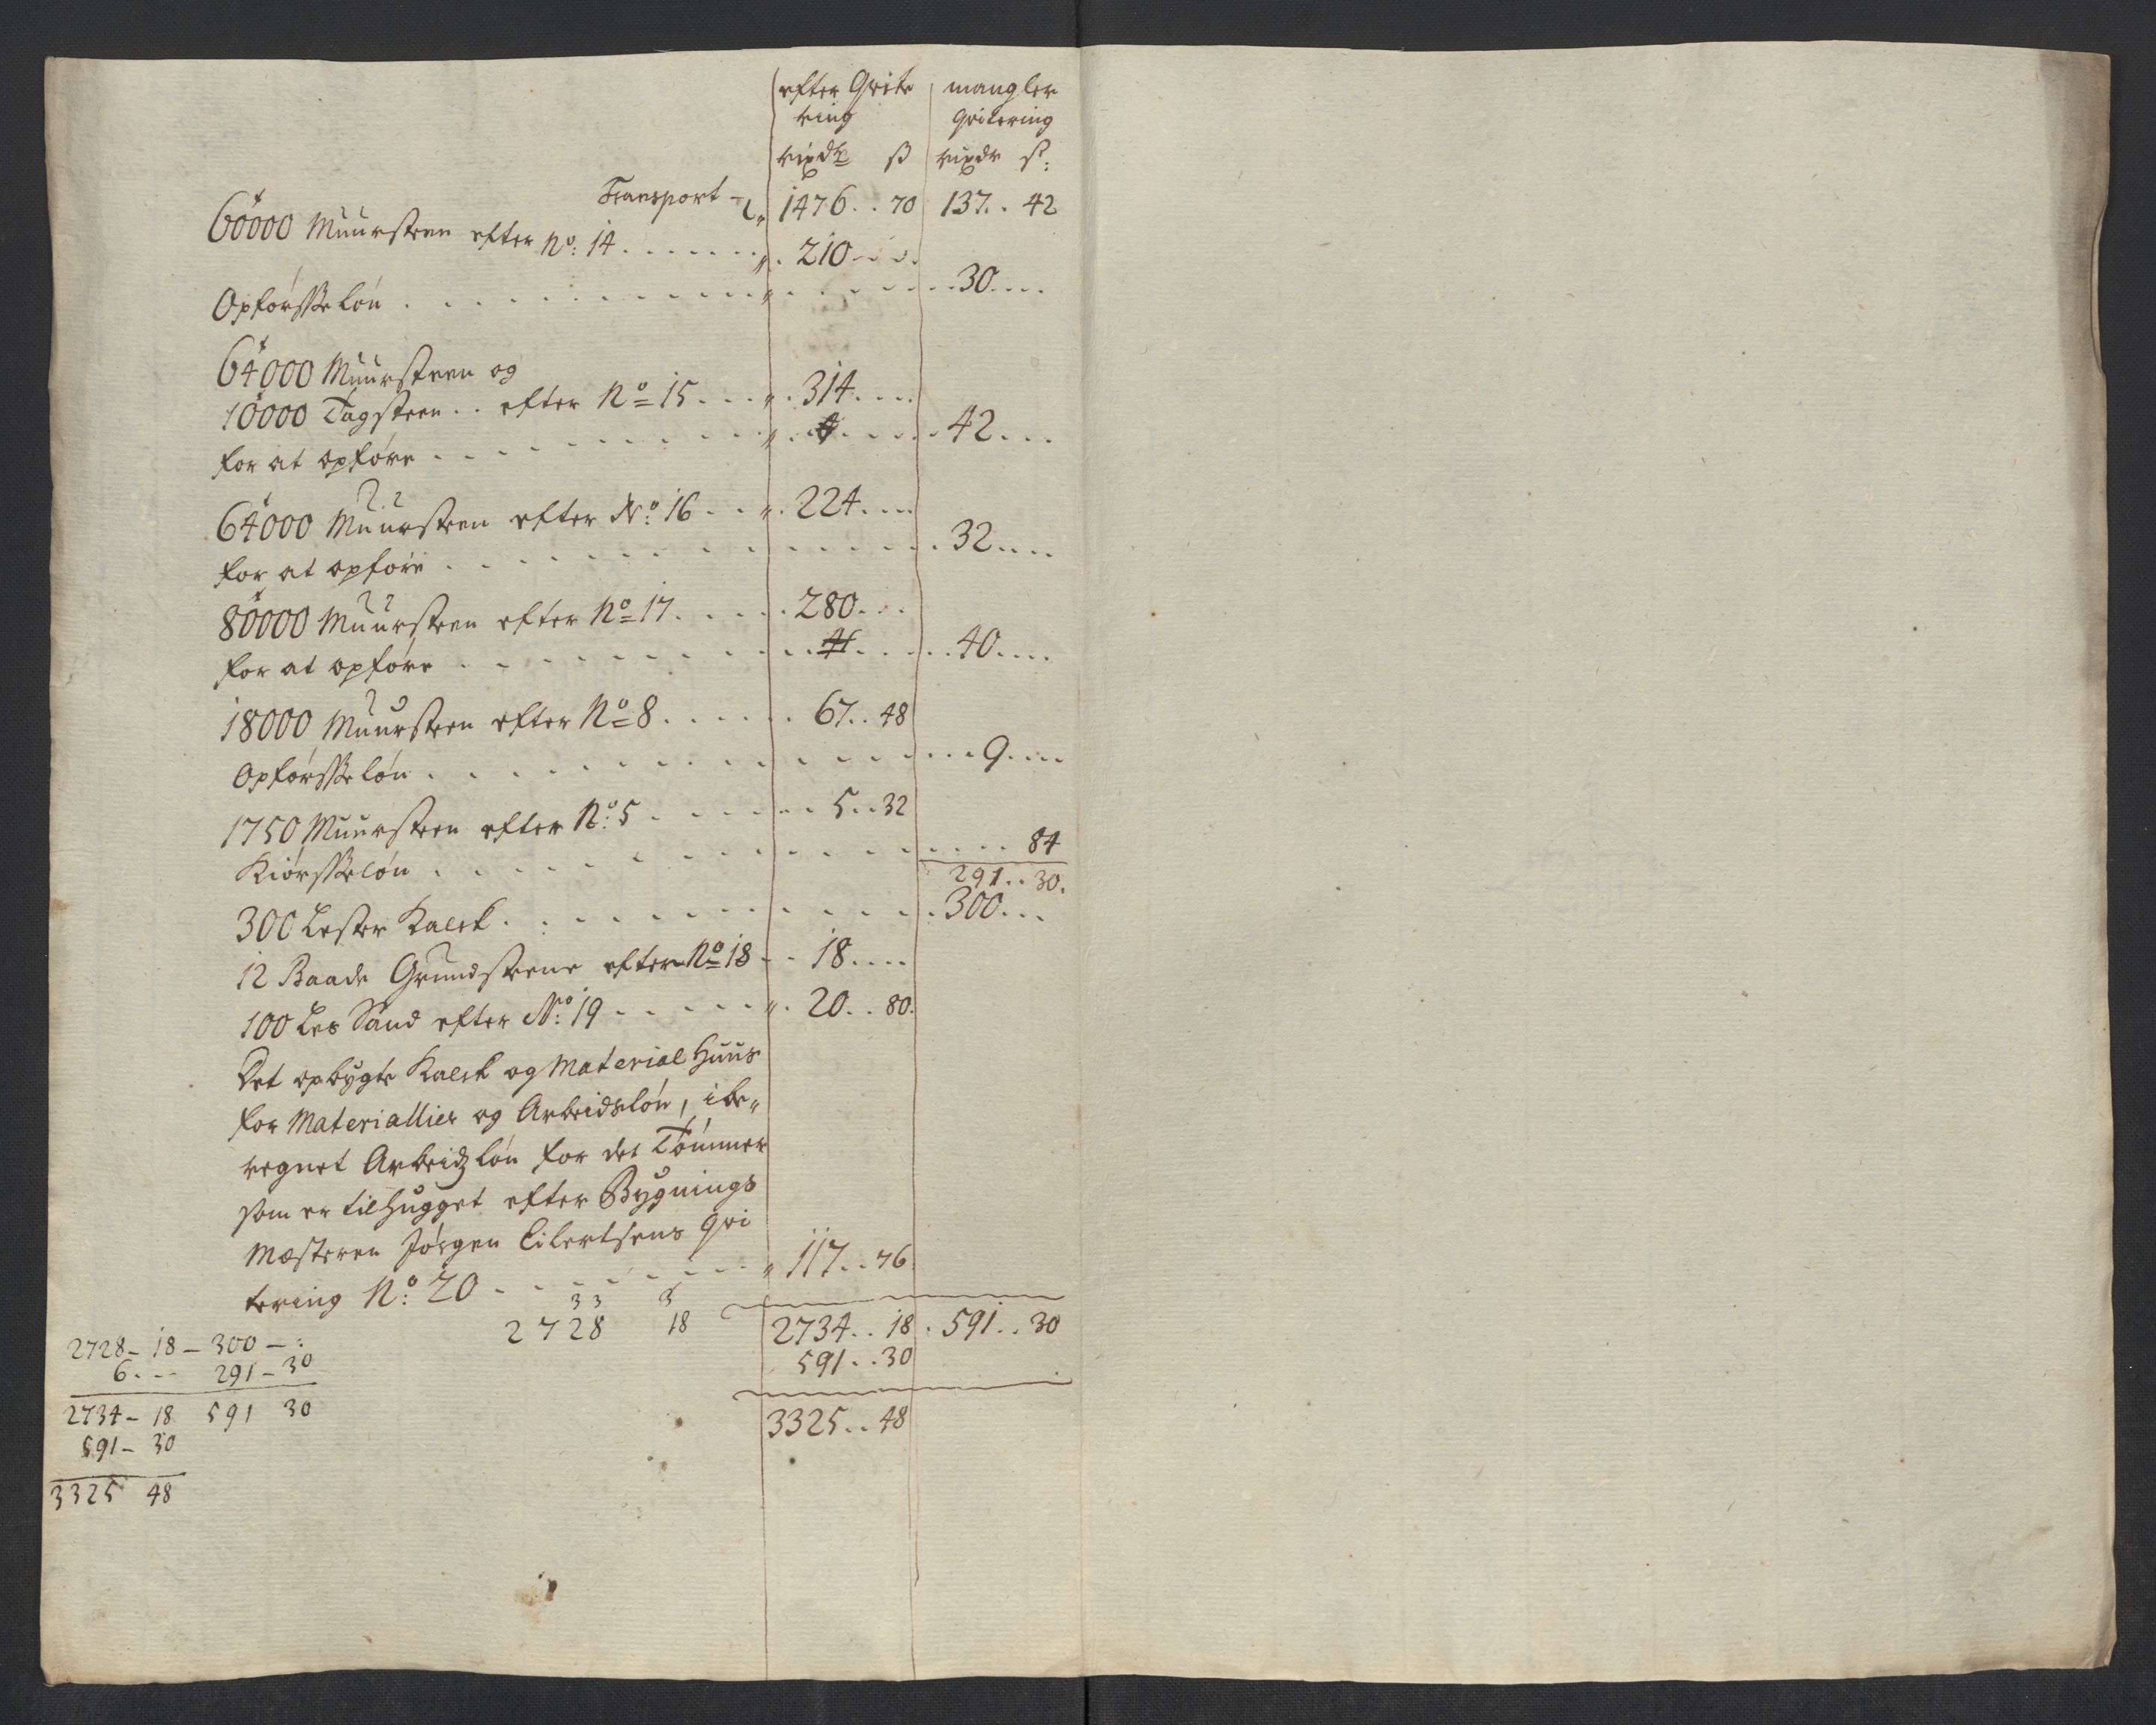 efter Qvite mangler
ring Qvitering
rixdr ß rixdr ß:
Transport - 1476 . . 70 137 . . 42
60000 Muursteen efter No: 14 . . . . . . . 210 . . . .
Opförsselön . . . . . . . . . . . . 30 . . . .
64000 Muursteen og
10000 Tagsteen . . efter No 15 . . . . 314 . . . .
for at opföre . . . . . . . . . . 42 . . .
64000 Muursteen efter No: 16 . . . 224 . . . .
for at opföre . . . . . . . . . . 32 . . . .
80000 Muursteen efter No 17 . . . . . 280 . . .
for at opföre . . . . . . . . . . 40 . . . .
18000 Muursteen efter No 8 . . . . . . 67 . . 48
Opförsselön . . . . . . . . . . . . 9 . . . .
1750 Muursteen efter No: 5 . . . . . . 5 . . 32
Kiörsselön . . . . . . . . . . . . 84
291 . . 30.
300 Lester Kalck . . . . . . . . . . 300 . . .
12 Baade Grundsteene efter No 18 - . 18 . . . .
100 Les Sand efter No: 19 - - - - - . 20 . . 80.
Det opbygte Kalck og Material Huus
for Materiallier og Arbeidslön, ibe„
regnet Arbeidzlön for det Tömmer
som er tilhugget efter Bygnings
Mesteren Jörgen Eilertsens Qvi
tering No: 20 - - - - - - - 117 . . 76.
33 5
2728 18
2734 . . 18 . 591 . . 30
591 . . 30
3325 . . 48
2728 - 18 - 300 - :
6 . - - 291 - 30
2734 - 18 591 30
591 - 30
3325 48